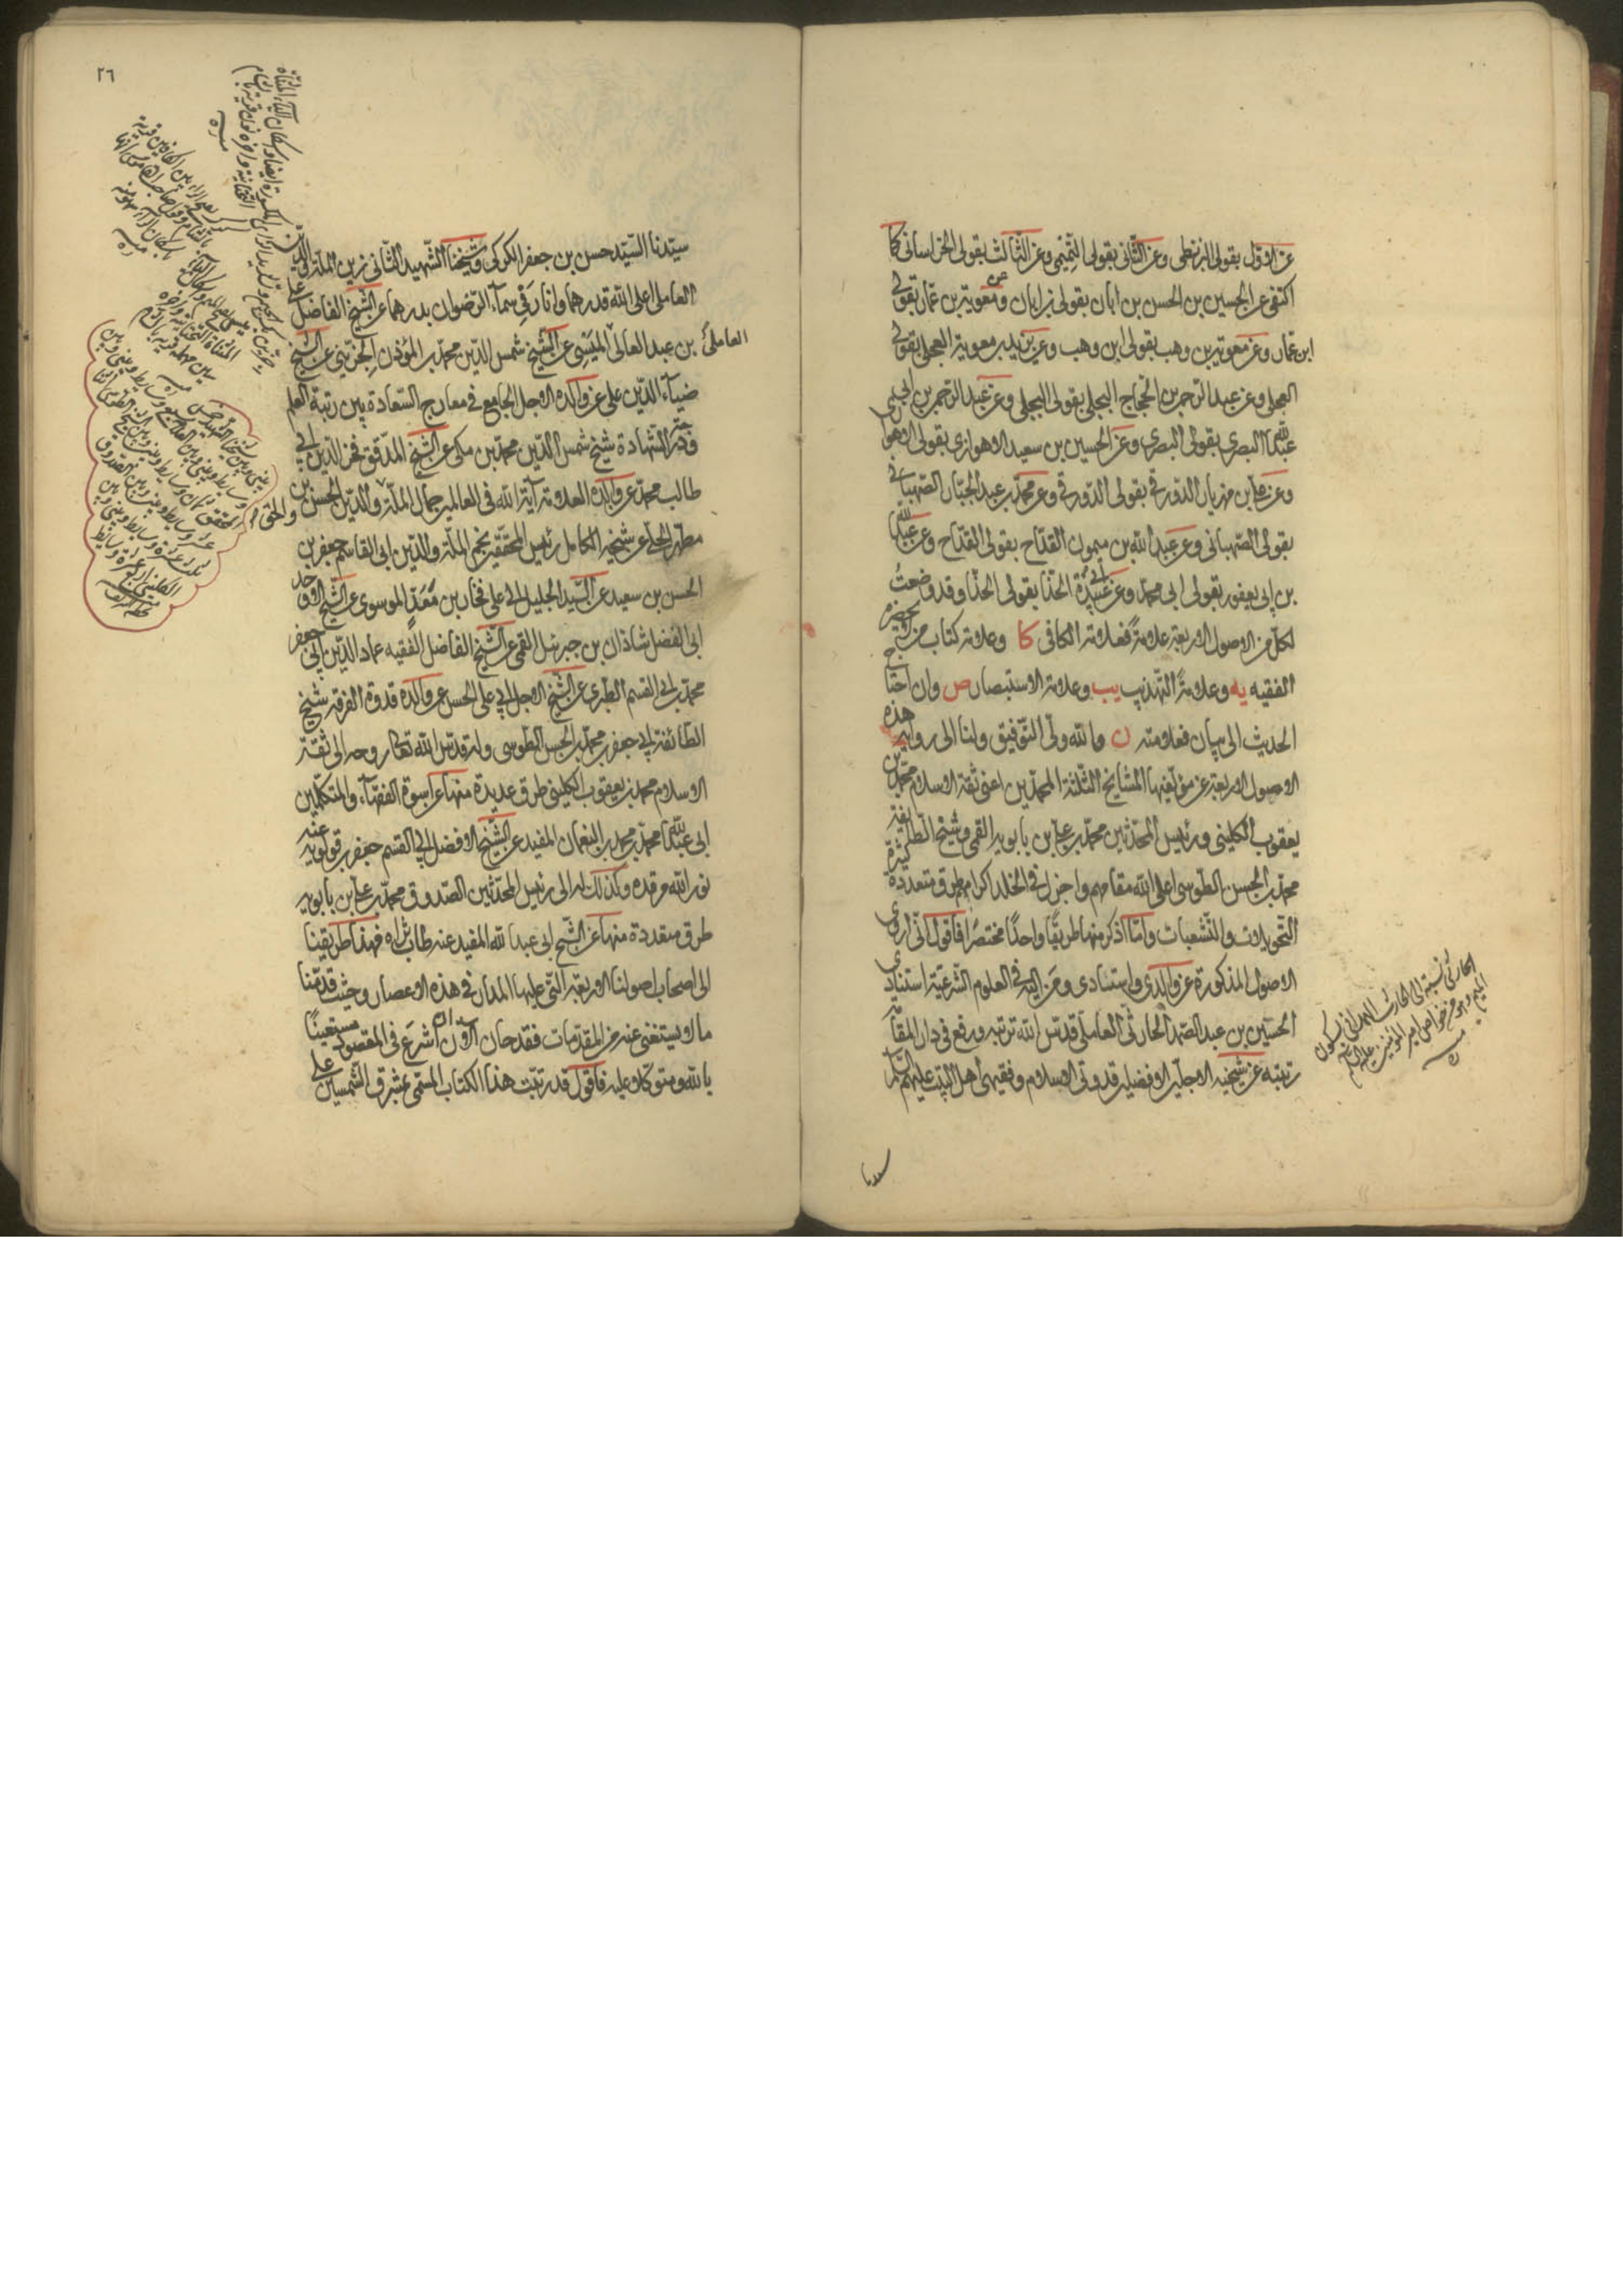 عن الاول بقولى البزنطى وعن الثانى بقولى التميمى وعن الثالث بقولى الخراسانى كما
اكتفى عن الحسين بن الحسن بن ابان بقولى بن ابان وعن معوية بن عمار بقولى
ابن عمار وعن معوية بن وهب بقولى ابن وهب وعن بريد بن معوية العجلى بقولى
العجلى وعن عبد الرحمن بن الحجاج البجلى بقولى البجلى وعن عبد الرحمن بن ابى
عبد الله البصرى بقولى البصرى وعن الحسين بن سعيد الاهوازى بقولى الاهوازى
وعن على بن مهزيار الدورقى بقولى الدورقى وعن محمد بن عبد الجبار الصهبانى
بقولى الصهبانى وعن عبد الله بن ميمون القداح بقولى القداح وعن عبد الله
بن ابى يعفور بقولى ابى محمد وعن ابى عبيدة الحذا بقولى الحذا وقد وضعتُ
لكل من الاصول الاربعة علامةً فعلامة الكافى كا وعلامة كتاب من لا يحضره
الفقيه يه وعلامة التهذيب يب وعلامة الاستبصار ص وان احتاج
الحديث الى بيان فعلامته ن والله ولى التوفيق ولنا الى رواية هذه
الاصول الاربعة عن مؤلفيها المشايخ الثلثة المحمدين اعنى ثقة الاسلام محمد بن
يعقوب الكلينى ورئيس المحدثين محمد بن على بن بابويه القمى وشيخ الطائفة
محمد بن الحسن الطوسى اعلى الله مقامهم واجزل فى الخلد اكرامهم طرق متعددة كثيرة
التحويلات والتشعبات وانما اذكر منها طريقًا واحدًا مختصرًا فاقول انى اروى
الاصول المذكورة عن والدى واستادى ومن اليه فى العلوم الشرعية استنادى
الحسين بن عبد الصمد الحارثى العاملى قدس الله تربته ورفع فى دار المقامة
رتبته عن شيخيه الاجلين الافضلين قدوتى الاسلام وفقيهى اهل البيت عليهم السلام
الحارثى نسبة الى الحارث الهمدانى بسكون
الميم وهو من خواص امير المؤمنين عليه السلام
منه ره
سيدنا
٢٦
سيدنا السيد حسن بن جعفر الكركى وشيخنا الشهيد الثانى زين الملة والدين
العاملى اعلى الله قدرهما وانار فى سماء الرضوان بدرهما عن الشيخ الفاضل على
العاملى بن عبد العالى الميسى عن الشيخ شمس الدين محمد بن المؤذن الجزينى عن الشيخ
ضياء الدين على عن والده الاجل الجامع فى معارج السعادة بين رتبة العلم
ودرجة الشهادة شيخ شمس الدين محمد بن مكى عن الشيخ المدقق فخر الدين ابى
طالب محمد عن والده العلامة آية الله فى العالمين جمال الملة والحق والدين الحسن بن
مطهر الحلى عن شيخه الكامل رئيس المحققين نجم الملة والدين ابى القاسم جعفر بن
الحسن بن سعيد عن السيد الجليل ابى على فخار بن مُعَدّ الموسوى عن الشيخ الاوحد
ابى الفضل شاذان بن جبرئيل القمى عن الشيخ الفاضل الفقيه عماد الدين ابى جعفر
محمد بن ابى القسم الطبرى عن الشيخ الاجل ابى على الحسن عن والده قدوة الفرقة شيخ
الطائفة ابى جعفر محمد بن الحسن الطوسى وله قدس الله تعالى روحه الى ثقة
الاسلام محمد بن يعقوب الكلينى طرق عديدة منها عن اسوة الفقهاء والمتكلمين
ابى عبد الله محمد بن محمد بن النعمان المفيد عن الشيخ الافضل ابى القسم جعفر بن قولويه عنه
نور الله مرقده وكذلك له الى رئيس المحدثين الصدوق محمد بن على بن بابويه
طرق متعددة منها عن الشيخ ابى عبد الله المفيد عنه طاب ثراه فهذا طريقنا
الى اصحاب اصولنا الاربعة التى عليها المدار فى هذه الاعصار وحيث قدمنا
ما لا يستغنى عنه من المقدمات فقد حان الآن ان اشرع فى المقصود مستعينًا
بالله ومتوكلا عليه فاقول قد رتبت هذا الكتاب المسمى بمشرق الشمسين على